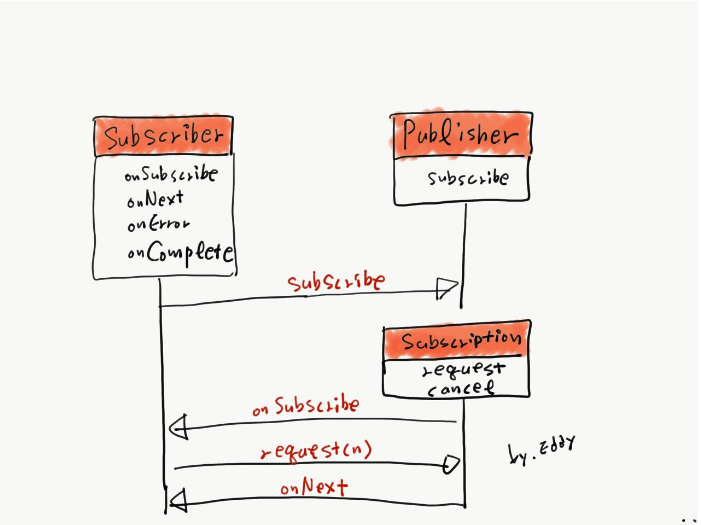 Subscriber
onSubscribe
onNext
onError
onComplete
Publisher
subscribe
subscribe
Subscription
request
cancel
onSubscribe
request(n)
onNext
by. Eddy